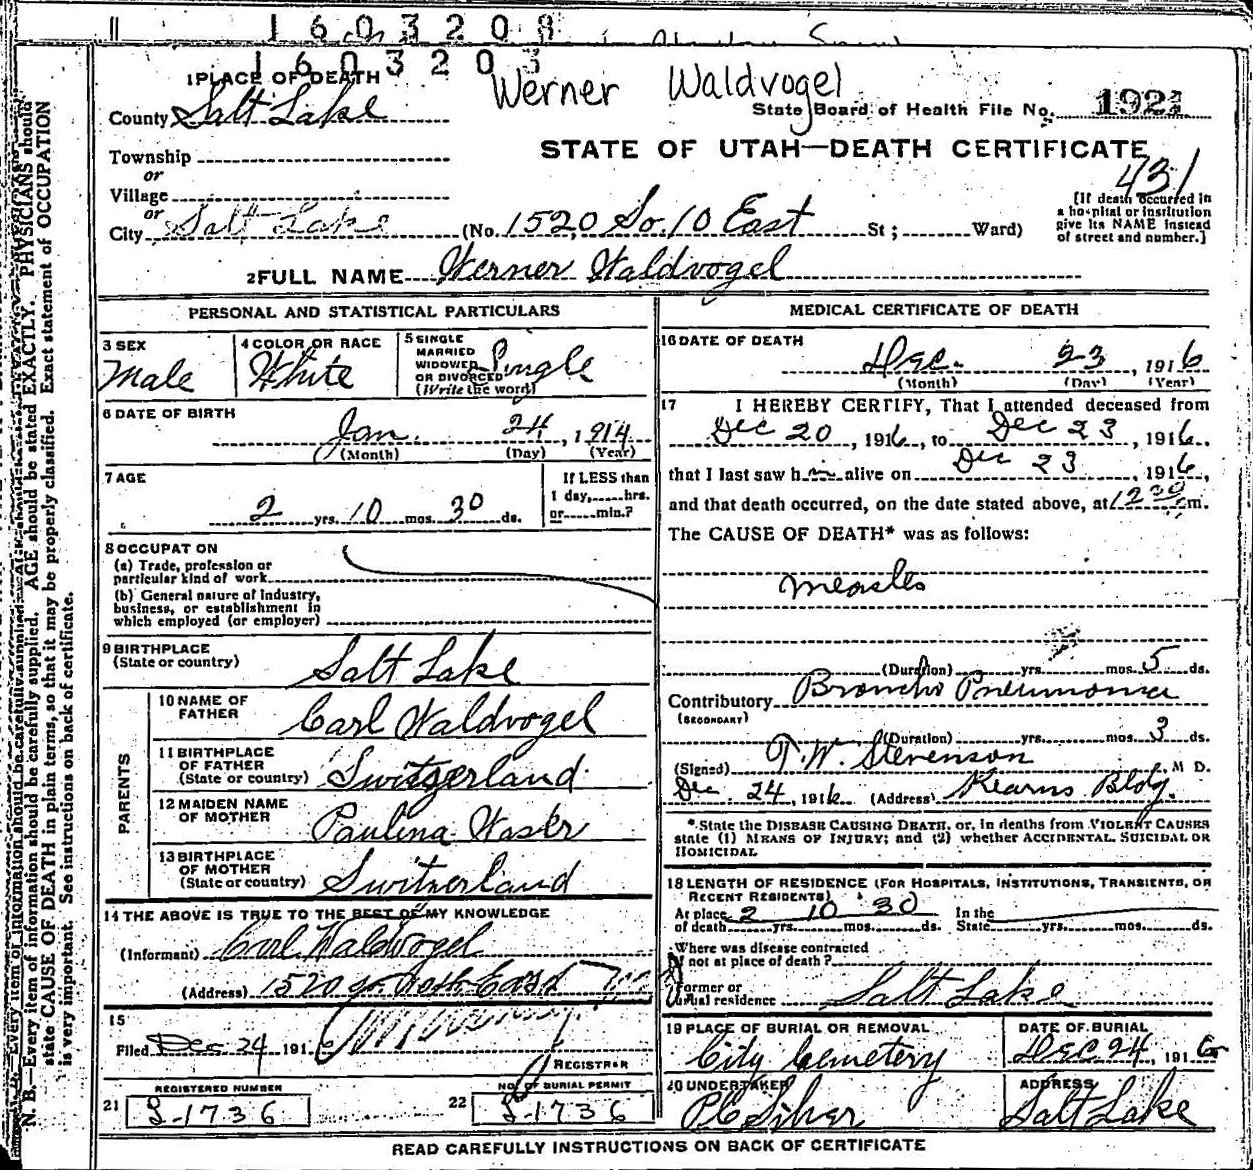 1603208
1603203
1 PLACE OF DEATH
Werner Waldvogel
County Salt Lake
State Board of Health File No. 1921
Township
STATE OF UTAH—DEATH CERTIFICATE
or
431
Village
or
City Salt Lake (No. 1520 So. 10 East St; Ward)
[If death occurred in
a hospital or institution
give its NAME instead
of street and number.]
2 FULL NAME Werner Waldvogel
PERSONAL AND STATISTICAL PARTICULARS
3 SEX Male
4 COLOR OR RACE White
5 SINGLE
MARRIED
WIDOWED
OR DIVORCED
(Write the word)
Single
6 DATE OF BIRTH
Jan. 24, 1914
(Month) (Day) (Year)
7 AGE
2 yrs. 10 mos. 30 ds.
If LESS than
1 day, hrs.
or min.?
8 OCCUPATION
(a) Trade, profession or
particular kind of work
(b) General nature of industry,
business, or establishment in
which employed (or employer)
9 BIRTHPLACE
(State or country) Salt Lake
PARENTS
10 NAME OF
FATHER Carl Waldvogel
11 BIRTHPLACE
OF FATHER
(State or country) Switzerland
12 MAIDEN NAME
OF MOTHER Paulina Waser
13 BIRTHPLACE
OF MOTHER
(State or country) Switzerland
14 THE ABOVE IS TRUE TO THE BEST OF MY KNOWLEDGE
(Informant) Carl Waldvogel
(Address) 1520 So. East
15
Filed Dec 24 1916
REGISTRAR
REGISTERED NUMBER
21 S-1736
NO. OF BURIAL PERMIT
22 S-1736
MEDICAL CERTIFICATE OF DEATH
16 DATE OF DEATH
Dec. 23, 1916
(Month) (Day) (Year)
17 I HEREBY CERTIFY, That I attended deceased from
Dec 20, 1916, to Dec 23, 1916,
that I last saw him alive on Dec 23, 1916,
and that death occurred, on the date stated above, at 12 30 m.
The CAUSE OF DEATH* was as follows:
Measles
(Duration) yrs. mos. 5 ds.
Contributory Broncho Pneumonia
(SECONDARY)
(Duration) yrs. mos. 3 ds.
(Signed) T. W. Stevenson, M D.
Dec. 24, 1916 (Address) Kearns Bldg.
*State the DISEASE CAUSING DEATH, or, in deaths from VIOLENT CAUSES
state (1) MEANS OF INJURY; and (2) whether ACCIDENTAL, SUICIDAL OR
HOMICIDAL
18 LENGTH OF RESIDENCE (FOR HOSPITALS, INSTITUTIONS, TRANSIENTS, OR
RECENT RESIDENTS)
At place 2 10 30 In the
of death yrs. mos. ds. State yrs. mos. ds.
Where was disease contracted
if not at place of death?
Former or
usual residence Salt Lake
19 PLACE OF BURIAL OR REMOVAL
City Cemetery
DATE OF BURIAL
Dec 24, 1916
20 UNDERTAKER
P C Silver
ADDRESS
Salt Lake
READ CAREFULLY INSTRUCTIONS ON BACK OF CERTIFICATE
N. B.—Every item of information should be carefully supplied. AGE should be stated EXACTLY. PHYSICIANS should
state CAUSE OF DEATH in plain terms, so that it may be properly classified. Exact statement of OCCUPATION
is very important. See instructions on back of certificate.